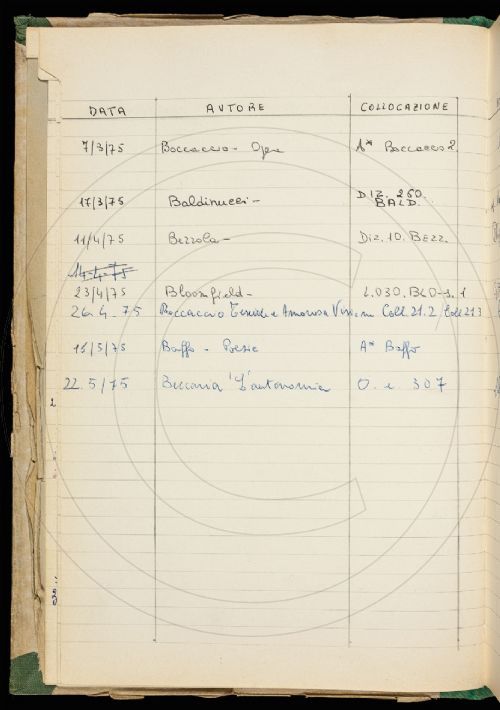 DATA AUTORE COLLOCAZIONE
7/3/75 Boccaccio - Opere A* Boccaccio 2.
17/3/75 Baldinucci - DIZ. 250. BALD.
11/4/75 Bezzola - DIZ. 10. BEZZ.
14-4-75
23/4/75 Bloomfield - L.030.BLO-1.1
26.4.75 Boccaccio Teseida e Amorosa Visione Coll.21.2 Coll 21 3
15/5/75 Baffo - Poesie A* Baffo
22.5/75 Beccaria "L'autonomia O. e 307